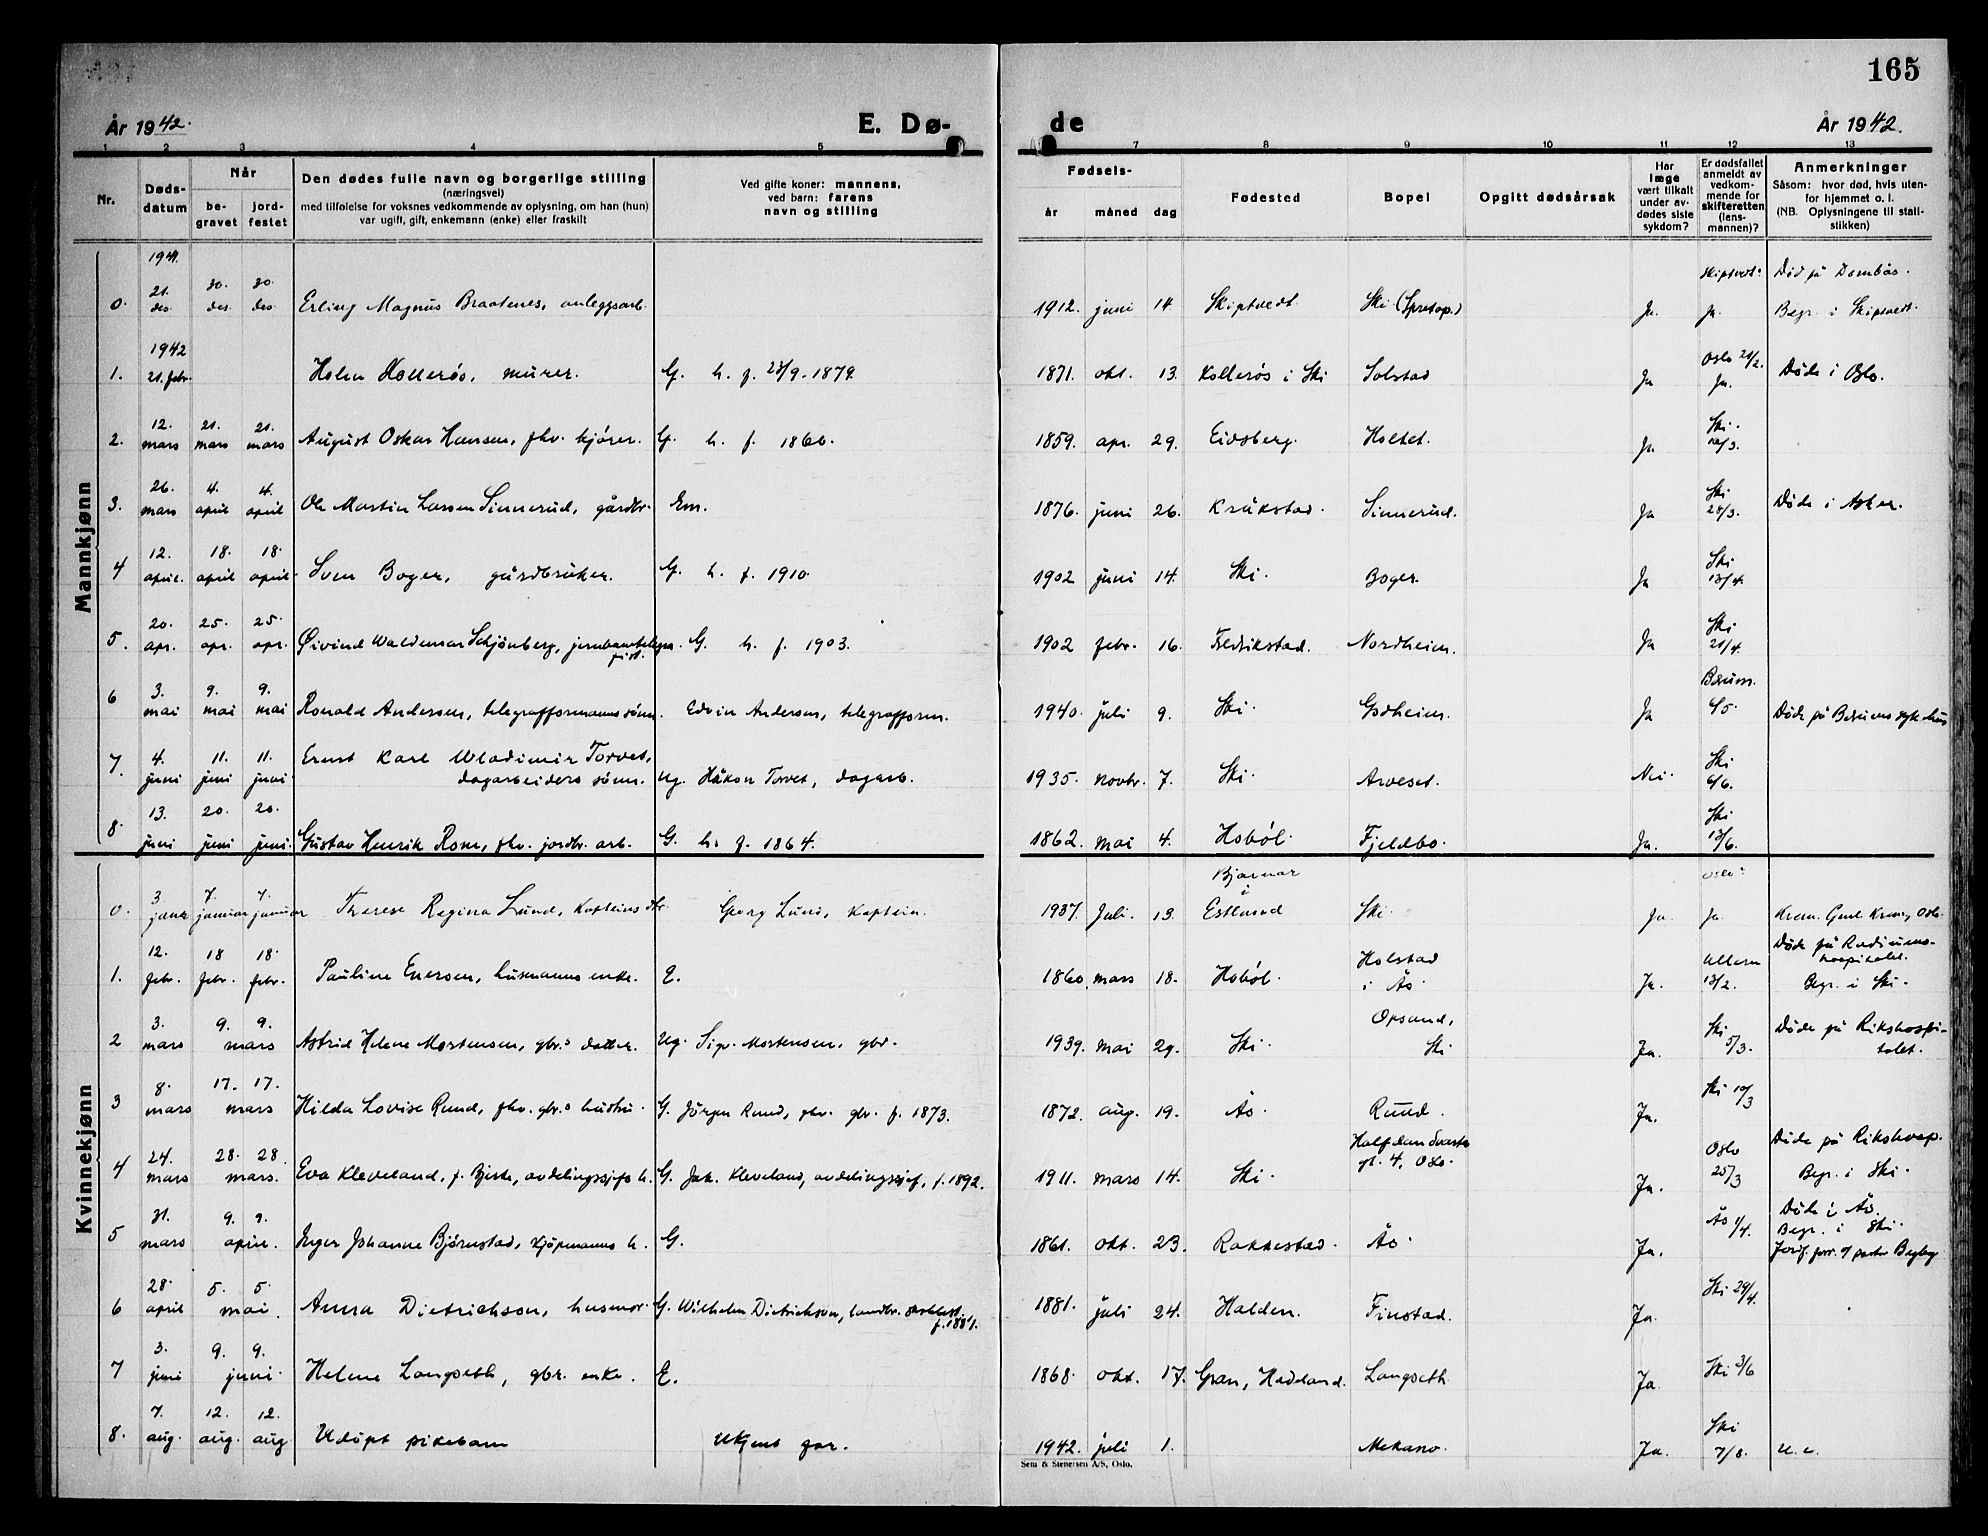 165
År 1942.
E. Dø-
de
År 1942.
1 2 3 4 5 7 8 9 10 11 12 13
Nr.
Døds-
datum
Når
be-
gravet
jord-
festet
Den dødes fulle navn og borgerlige stilling
(næringsvei)
med tilføielse for voksnes vedkommende av oplysning, om han (hun)
var ugift, gift, enkemann (enke) eller fraskilt
Ved gifte koner: mannens,
ved barn: farens
navn og stilling
Fødsels-
år måned dag
Fødested
Bopel
Opgitt dødsårsak
Har
læge
vært tilkalt
under av-
dødes siste
sykdom?
Er dødsfallet
anmeldt av
vedkom-
mende for
skifteretten
(lens-
mannen)?
Anmerkninger
Såsom: hvor død, hvis uten-
for hjemmet o. l.
(NB. Oplysningene til stati-
stikken)
Mannkjønn
1941. Skiptvedt: Død på Dombås.
0. 21. des. 30. des. 30. des. Erling Magnus Braatenes, anleggsarb. 1912. juni 14. Skiptvedt Ski Ja. Ja. Begr. i Skiptvedt.
1942
1. 21. febr. Kollerøs, murer. G. h. f. 23/9-1879. 1871. okt. 13. Kollerøs i Ski Solstad Ja Oslo 24/2. Ja. Døde i Oslo.
2. 12. mars 21. mars 21. mars August Oskar Hansen, fhv. kjører. G. h. f. 1866. 1859. apr. 29. Eidsberg. Holtet. Ja Ski
3. 26. mars 4. april 4. april Ole Martin Larsen Sinnerud, gårdbr. Em. 1876. juni 26. Kråkstad. Sinnerud. Ja Ski 28/3. Døde i Asker.
4 12. april. 18. april 18. april Sven Boger, gårdbruker. G. h. f. 1910. 1902 juni 14. Ski. Boger. Ja Ski 13/4.
5. 20. apr. 25. apr. 25. apr. Øivind Waldemar Schjønberg, jernbanetelegra-
fist. G. h. f. 1903. 1902 febr. 16. Fredrikstad. Nordheim. Ja Ski 21/4.
6 3. mai 9. mai 9. mai Ronald Andersen, telegrafformanns sønn. Edvin Andersen, telegrafform. 1940. juli 9. Ski. Godheim. Ja Bærum. 4/5. Døde på Bærums sykehus
7. 4. juni 11. juni 11. juni Ernst Karl Wladimir Torvet,
dagarbeiders sønn. Ug. Håkon Torvet, dagarb. 1935. novbr. 7. Ski. Arveset. Nei. Ski 6/6.
8. 13. juni 20. juni 20. juni. Gustav Henrik Rom, fhv. jordbr. arb. G. h. f. 1864. 1862. mai 4. Hobøl. Fjeldbo. Ja. Ski 13/6.
Kvinnekjønn
0. 3 januar 7. januar 7. januar Therese Regina Lund, Kapteins dtr. Georg Lund, Kaptein. 1937. Juli. 13. i Estland Ski. Ja. Oslo: Ja. Krem. Gml. Krem, Oslo.
1. 12. febr. 18 febr. 18. febr. Pauline Enersen, husmanns enke. E. 1860. mars 18. Hobøl. Holstad i Ås Ja. Ullern 13/2. Døde på Radiums-
hospitalet.
Begr. i Ski.
2 3. mars 9. 9. mars Astrid Helene Mortensen, gbr.s datter. Ug. Sigv. Mortensen, gbr. 1939. mai 29. Ski. Opsand, Ski Ja. Ski 5/3. Døde på Rikshospi-
talet.
3 8. mars 17. 17. mars Hilda Lovise Rund, fhv. gbr.s hustru. G. Jørgen Rund, fhv. gbr. f. 1873. 1872. aug. 19. Ås. Rund. Ja. Ski 10/3
4 24. mars 28. 28. mars. Eva Kleveland, f. Bjerke, avdelingssjefs h. G. Jak. Kleveland, avdelingssjef, f. 1892. 1911. mars 14. Ski. Halfdan Svartes gt. 4, Oslo. Ja. Oslo 25/3 Døde på Rikshosp.
Begr. i Ski.
5 31. mars 9. 9. april. Inger Johanne Bjørnstad, kjøpmanns h. G. 1861. okt. 23. Rakkestad. Ås. Ja. Ås 1/4. Døde i Ås.
Begr. i Ski.
Jordf. forr. af pastor Begby
6 28. april 5. 5. mai. Anna Dietrichson, husmor. G. Wilhelm Dietrichson, landbr.
f. 1881. 1881. juli 24. Halden. Finstad. Ja. Ski 29/4.
7 3. juni 9. 9. juni. Helene Langseth, gbr. enke. E. 1868. okt. 17. Gran, Hadeland. Langseth Ja. Ski 3/6
8. 7. aug. 12. aug. 12. aug Udøpt pikebarn Ukjent far. 1942. juli 1. Mekano. Ja. Ski 7/8. u. e.
Sem & Stenersen A/S, Oslo.